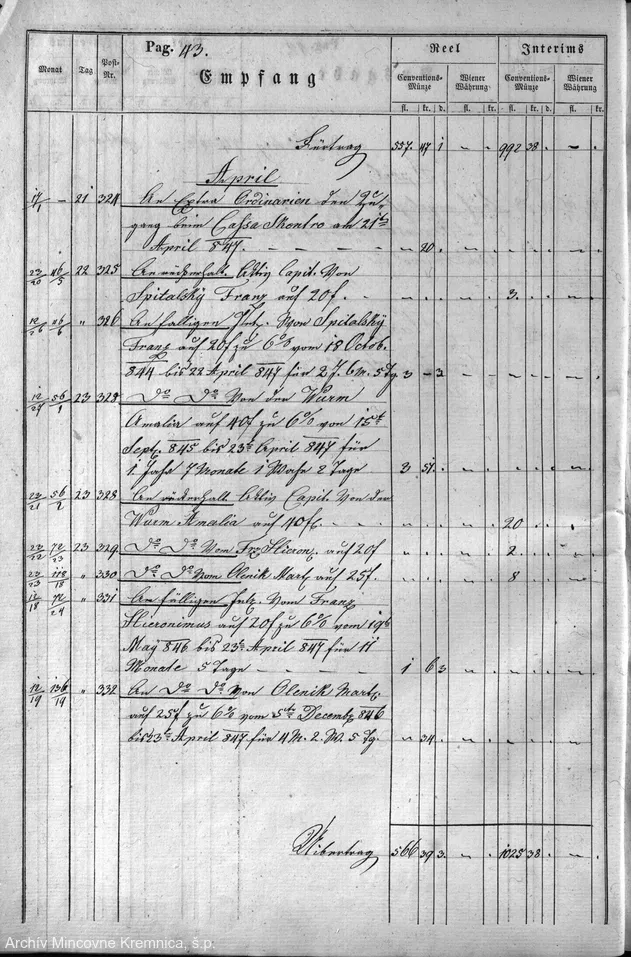 Pag. 43. Reel Interims
Monat Tag Post-Nr. Empfang Conventions-Münze Wiener Währung Conventions-Münze Wiener Währung
fl. kr. d. fl. kr. fl. kr. d. fl. kr.
Fürtrag 557. 47 1 992 38
April
17/1 21 324 An Extra Ordinarien den Zu-
gang beim Cassa Skontro am 21ten
April 847. 20.
23/20 46/5 22 325 An rückerhalt. Aktiv Capit. Von
Spitalsky Franz auf 20f. 3.
12/26 46/6 " 326 An fälligen Int. Von Spitalsky
Franz auf 20f zu 6% vom 18 Octob.
844 bis 22 April 847 für 2 J. 6 M. 5 Tg. 3 – 3
12/27 56/1 23 328 Do Do Von der Wurm
Amalia auf 40f zu 6% von 15ten
Sept. 845 bis 23t April 847 für
1 Jahr 7 Monate 1 Woche 2 Tage 3 51
23/21 56/2 23 328 An rückerhalt Aktiv Capit. Von der
Wurm Amalia auf 40f 20
23/22 72/23 23 329 Do Do Vom Frz Hieron. auf 20f 2
23/23 118/18 " 330 Do Do vom Olenik Mart. auf 25f. 8
12/18 72/24 " 331 An fälligen Int. Vom Franz
Hieronimus auf 20f zu 6% vom 19t
May 846 bis 23t April 847 für 11
Monate 5 Tage 1 6 3
12/19 136/19 " 332 An Do Do Von Olenik Mart.
auf 25f zu 6% vom 5ten Decemb. 846
bis 23t April 847 für 4 M. 2. W. 5 Tg. 34.
Uibertrag 566 39 3. 1025 38
Archív Mincovne Kremnica, š.p.